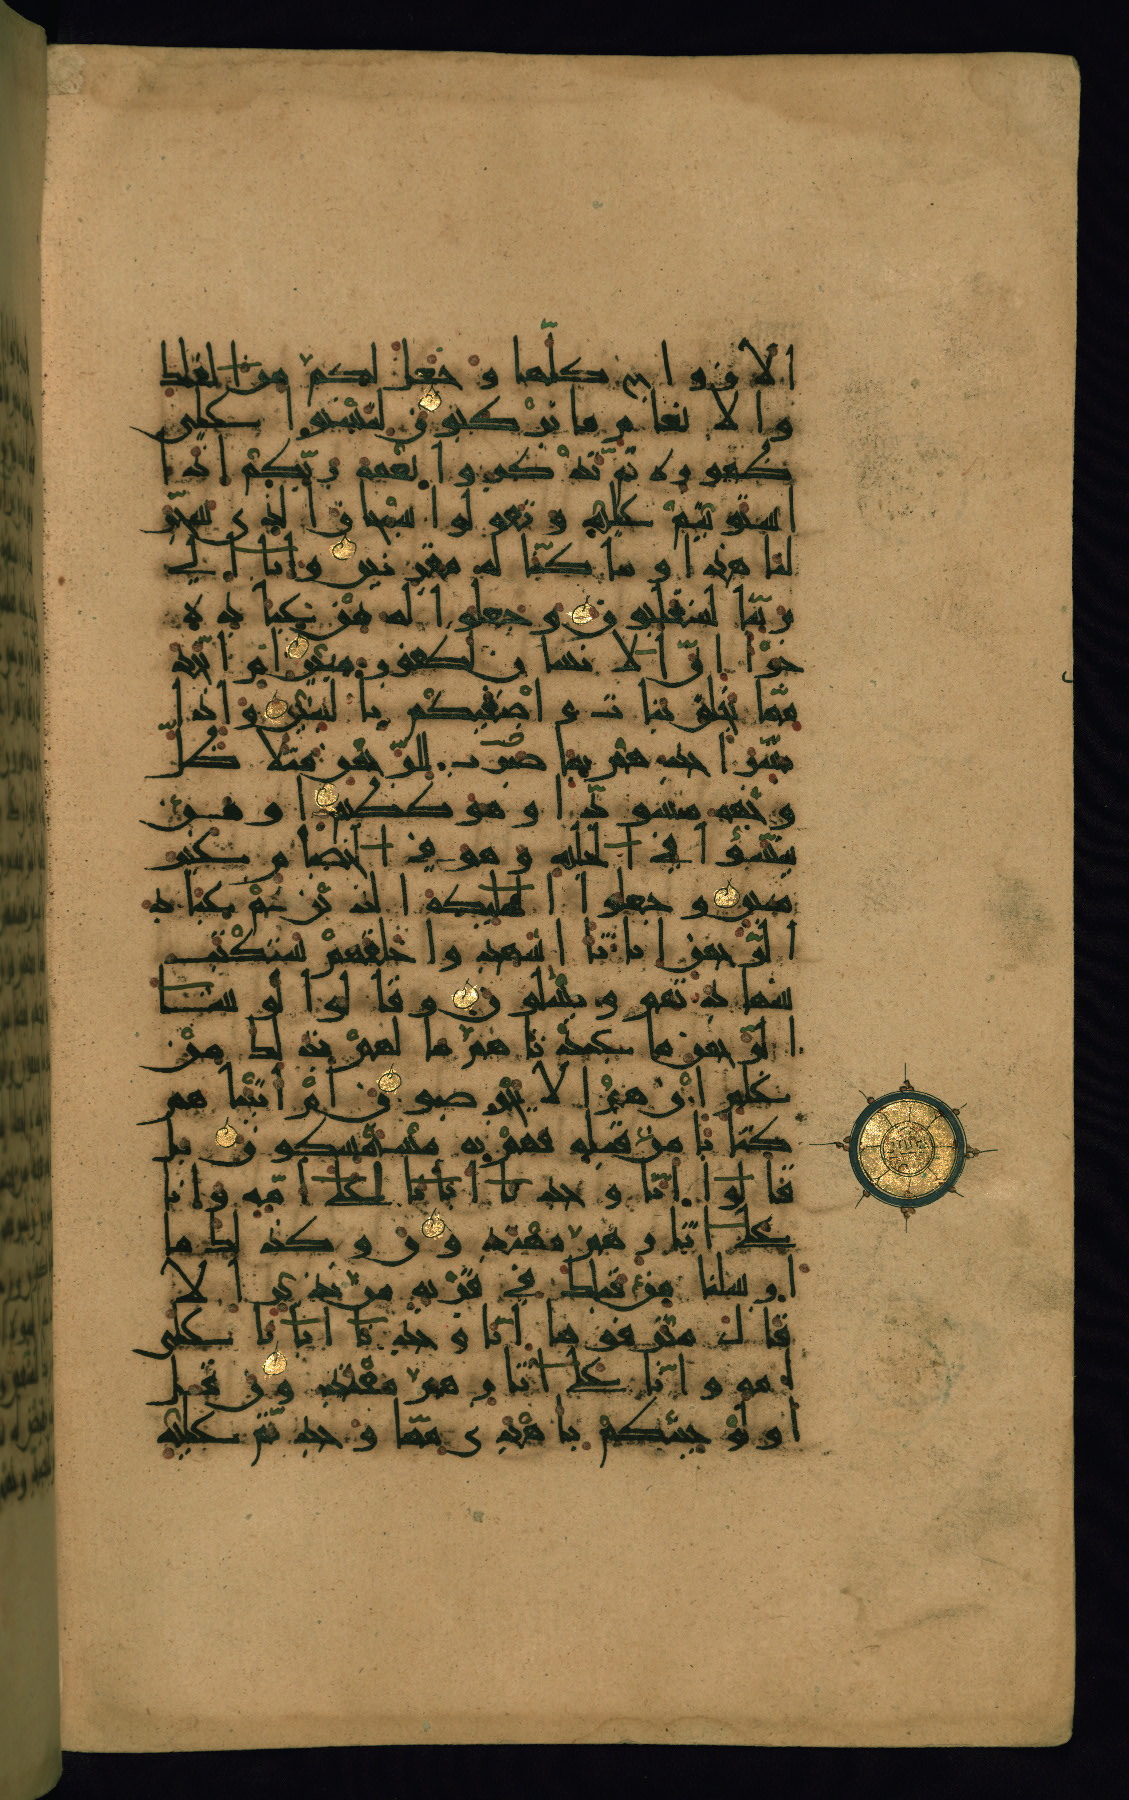 الازواج كلها وجعل لكم من الفلك
والانعام ما تركبون لتستوا على
ظهوره ثم تذكروا نعمة ربكم اذا
استويتم عليه وتقولوا سبحان الذى سخر
لنا هذا وما كنا له مقرنين وانا الى
ربنا لمنقلبون وجعلوا له من عباده
جزا ان الانسان لكفور مبين ام اتخذ
مما يخلق بنات و اصفيكم بالبنين واذا
بشر احدهم بما ضرب للرحمن مثلا ظل
وجهه مسودا وهو كظيم او من
ينشؤا في الحلية وهو في الخصام غير
مبين وجعلوا الملئكة الذين هم عباد
الرحمن اناثا اشهدوا خلقهم ستكتب
شهادتهم ويسئلون وقالوا لو شا
الرحمن ما عبدناهم ما لهم بذلك من
علم ان هم الا يخرصون ام اتيناهم
كتابا من قبله فهم به مستمسكون بل
قالوا انا وجدنا ابانا على امة وانا
على اثارهم مهتدون وكذلك ما
ارسلنا من قبلك في قرية من نذير الا
قال مترفوها انا وجدنا ابانا على
امة وانا على اثارهم مقتدون قل
اولو جئتكم باهدى مما وجدتم عليه